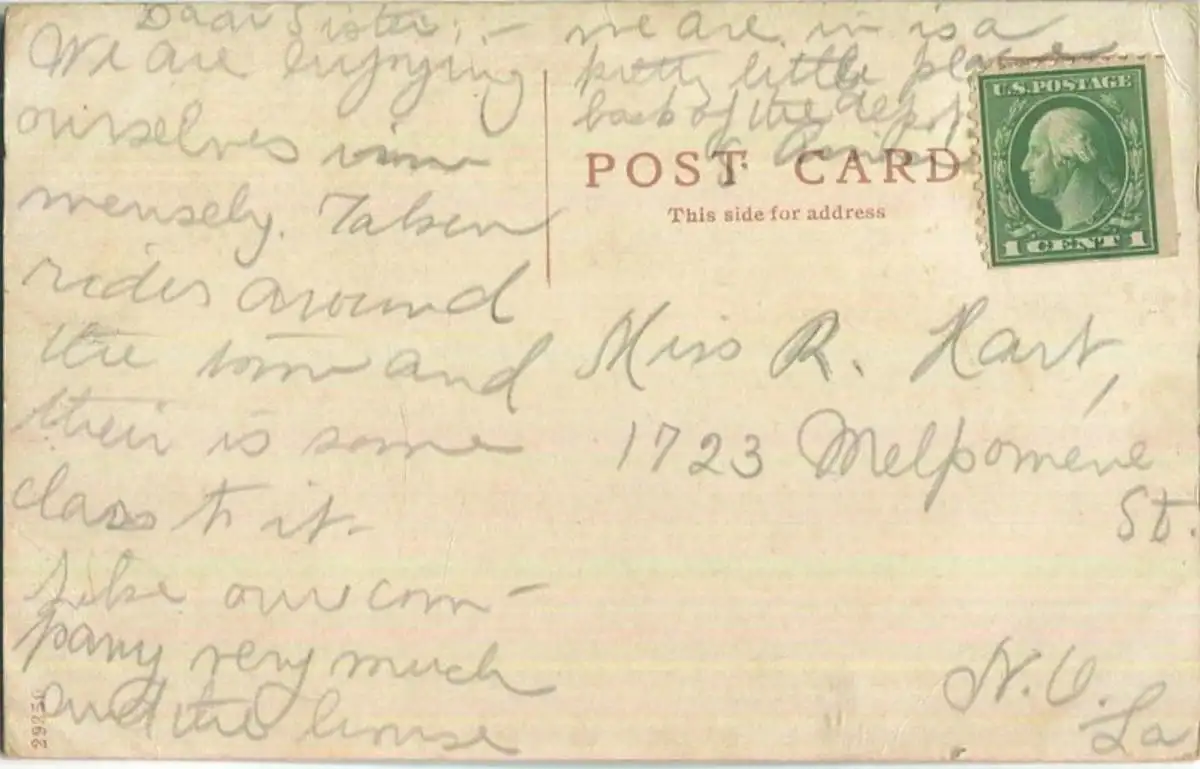 Dear Sister: -
We are enjoying
ourselves im
mensely. Taken
rides around
the town and
their is some
class to it.
Like our com -
pany very much
and the house
we are in is a
pretty little place in
back of the depot
POST CARD
This side for address
U.S. POSTAGE
1 CENT 1
Miss R. Hart,
1723 Melpomene
St.
N.O.
La